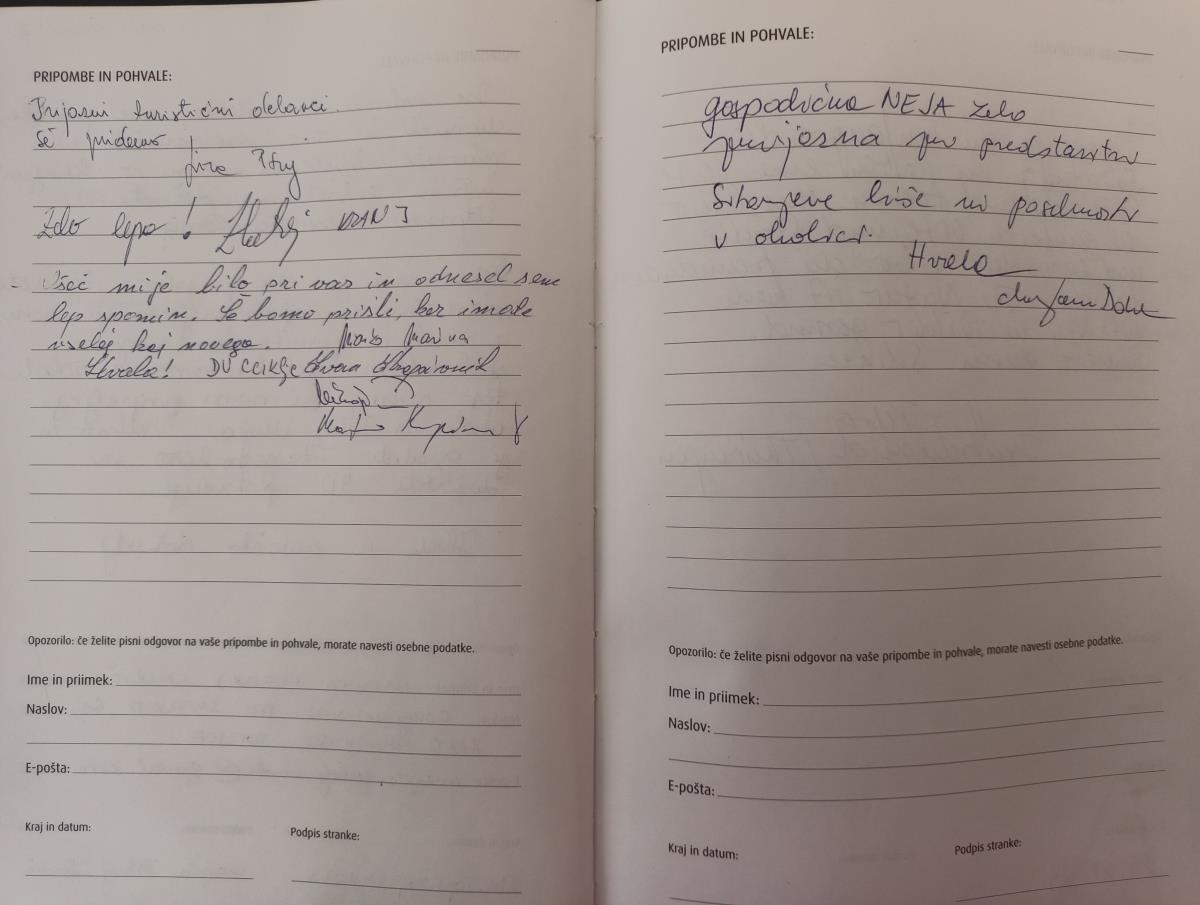 PRIPOMBE IN POHVALE:
Prijazni turistični delavci.
Še pridemo
Zelo lepo! KRANJ
Všeč mi je bilo pri vas in odnesel sem
lep spomin. Še bomo prišli, ker imate
vselej kaj novega.
Hvala! DU
Opozorilo: če želite pisni odgovor na vaše pripombe in pohvale, morate navesti osebne podatke.
Ime in priimek:
Naslov:
E-pošta:
Kraj in datum: Podpis stranke:
PRIPOMBE IN POHVALE:
gospodična NEJA zelo
prijazna pri predstavitvi
hiše in posebnosti
v okolici.
Hvala
Opozorilo: če želite pisni odgovor na vaše pripombe in pohvale, morate navesti osebne podatke.
Ime in priimek:
Naslov:
E-pošta:
Kraj in datum: Podpis stranke: